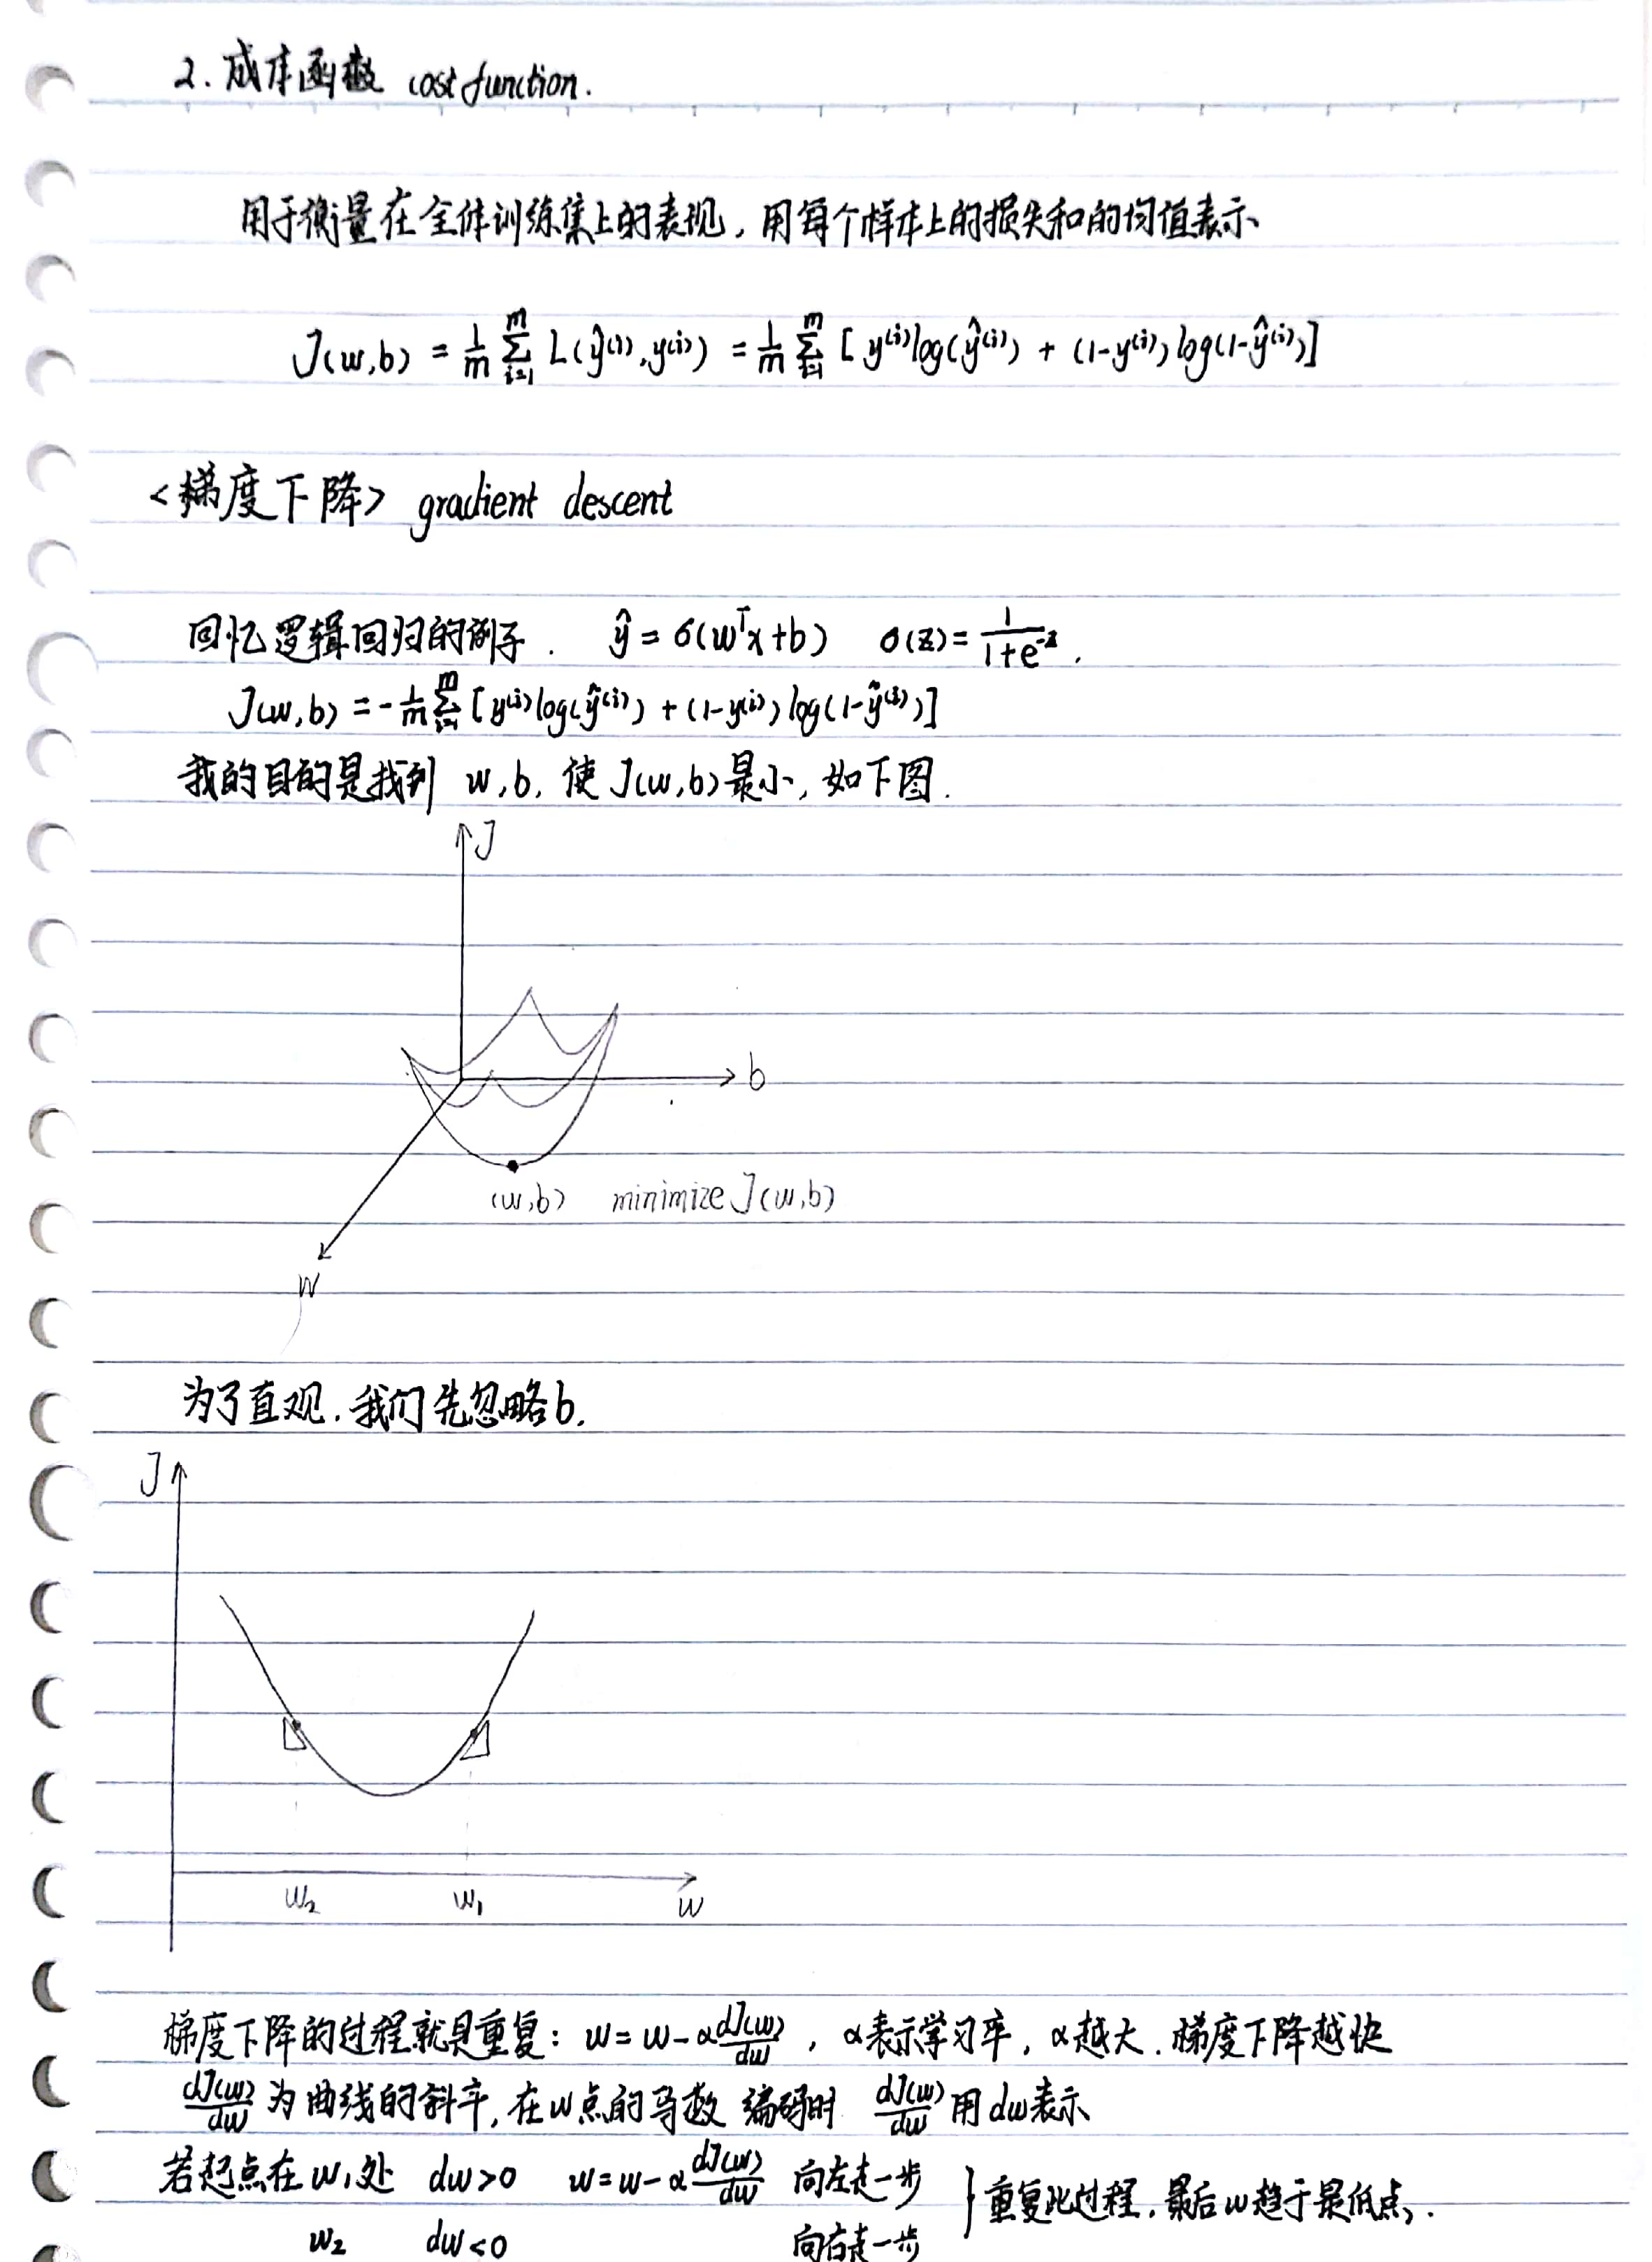 2. 成本函数 cost function.
用于衡量在全体训练集上的表现, 用每个样本上的损失和的均值表示
J(w,b) = 1/m ∑_{i=1}^{m} L(ŷ^{(i)}, y^{(i)}) = 1/m ∑_{i=1}^{m} [ y^{(i)} log(ŷ^{(i)}) + (1-y^{(i)}) log(1-ŷ^{(i)})]
<梯度下降> gradient descent
回忆逻辑回归的例子. ŷ = σ(w^T x+b) σ(z) = 1/(1+e^{-z}).
J(w,b) = -1/m ∑_{i=1}^{m} [ y^{(i)} log(ŷ^{(i)}) + (1-y^{(i)}) log(1-ŷ^{(i)})]
我的目的是找到 w,b, 使 J(w,b) 最小, 如下图.
J
b
(w,b) minimize J(w,b)
w
为了直观, 我们先忽略b.
J
w₂ w₁ w
梯度下降的过程就是重复: w = w - α dJ(w)/dw , α表示学习率, α越大, 梯度下降越快
dJ(w)/dw 为曲线的斜率, 在w点的导数 编码时 dJ(w)/dw 用 dw表示
若起点在 w₁处 dw>0 w=w-α dJ(w)/dw 向左走一步 } 重复此过程, 最后w趋于最低点.
w₂ dw<0 向右走一步